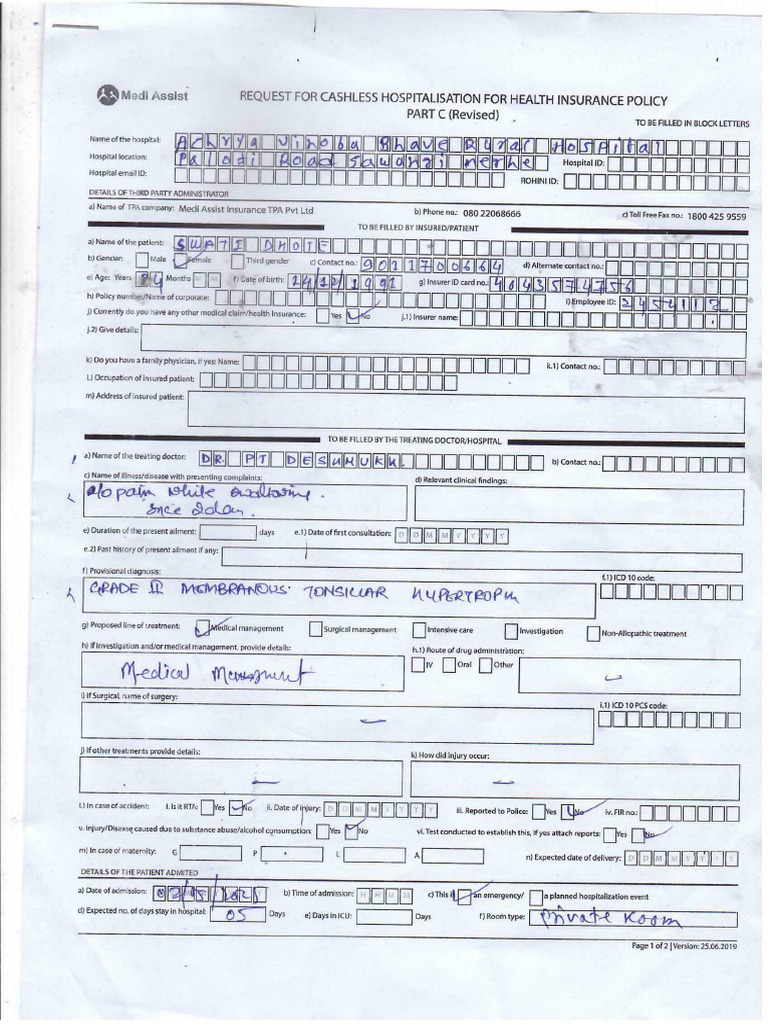 Medi Assist
REQUEST FOR CASHLESS HOSPITALISATION FOR HEALTH INSURANCE POLICY
PART C (Revised)
TO BE FILLED IN BLOCK LETTERS
Name of the hospital: Achrya vinoba Bhave Rural Hospital
Hospital location: Palodi Road Sawangi meghe Hospital ID:
Hospital email ID: ROHINI ID:
DETAILS OF THIRD PARTY ADMINISTRATOR
a) Name of TPA company: Medi Assist Insurance TPA Pvt Ltd b) Phone no.: 080 22068666 c) Toll Free Fax no.: 1800 425 9559
TO BE FILLED BY INSURED/PATIENT
a) Name of the patient: SWATI DHOTE
b) Gender: Male Female Third gender c) Contact no.: 9011700664 d) Alternate contact no.:
e) Age: Years Months M M f) Date of birth: g) Insurer ID card no.: 4043574756
h) Policy number/Name of corporate: i) Employee ID: 2454112
j) Currently do you have any other medical claim/health Insurance: Yes No j.1) Insurer name:
j.2) Give details:
k) Do you have a family physician, if yes: Name: k.1) Contact no.:
L) Occupation of insured patient:
m) Address of insured patient:
TO BE FILLED BY THE TREATING DOCTOR/HOSPITAL
a) Name of the treating doctor: DR. PT DESHMUKH. b) Contact no.:
c) Name of illness/disease with presenting complaints: d) Relevant clinical findings:
pain while swallowing.
since
e) Duration of the present ailment: days e.1) Date of first consultation: D D M M Y Y Y Y
e.2) Past history of present ailment if any:
f) Provisional diagnosis: f.1) ICD 10 code:
GRADE II MEMBRANOUS TONSILLAR HYPERTROPHY
g) Proposed line of treatment: Medical management Surgical management Intensive care Investigation Non-Allopathic treatment
h) If investigation and/or medical management, provide details: h.1) Route of drug administration:
Medical Management IV Oral Other
i) If Surgical, name of surgery: i.1) ICD 10 PCS code:
j) If other treatments provide details: k) How did injury occur:
l.) In case of accident: I. Is it RTA: Yes No ii. Date of injury: D D M M Y Y Y Y iii. Reported to Police: Yes No iv. FIR no.:
v. Injury/Disease caused due to substance abuse/alcohol consumption: Yes No vi. Test conducted to establish this, if yes attach reports: Yes No
m) In case of maternity: G P L A n) Expected date of delivery: D D M M Y Y Y Y
DETAILS OF THE PATIENT ADMITED
a) Date of admission: b) Time of admission: H H M M c) This is an emergency/ a planned hospitalization event
d) Expected no. of days stay in hospital: 05 Days e) Days in ICU: Days f) Room type: Private Room
Page 1 of 2 | Version: 25.06.2019